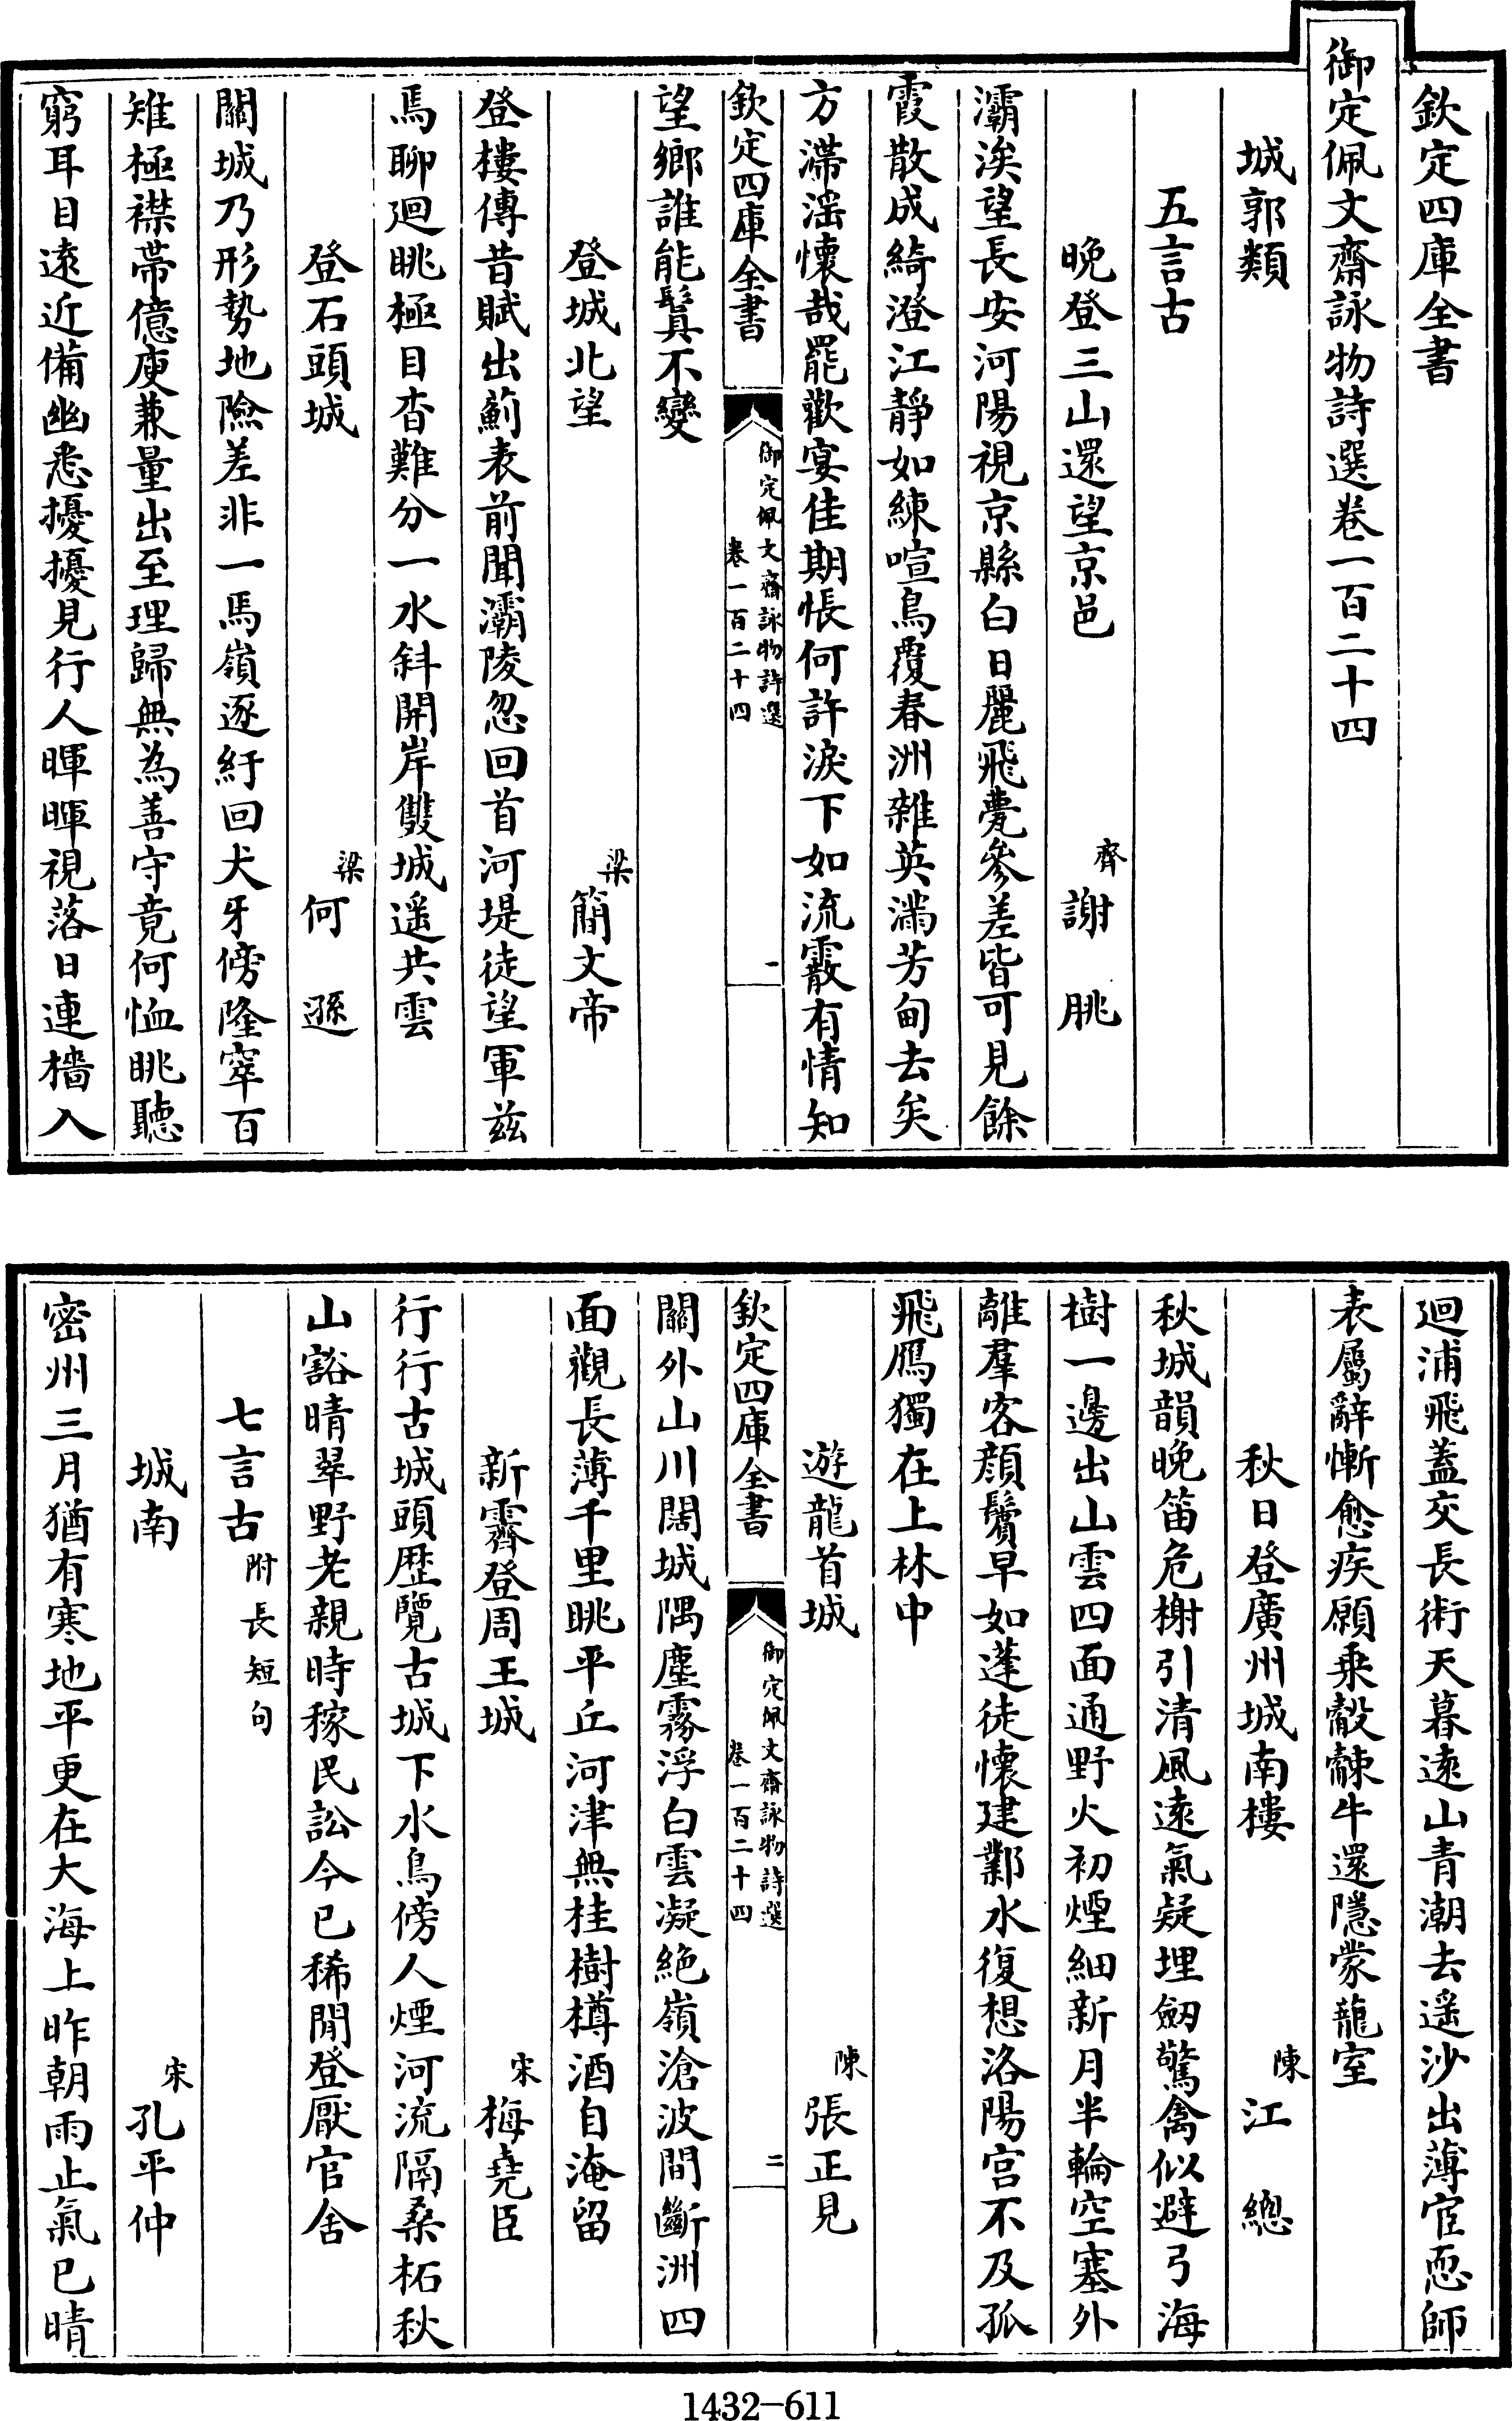 欽定四庫全書
御定佩文齋詠物詩選卷一百二十四
城郭類
五言古
晚登三山還望京邑 齊謝朓
灞涘望長安河陽視京縣白日麗飛甍參差皆可見餘
霞散成綺澄江靜如練喧鳥覆春洲雜英滿芳甸去矣
方滯滛懷哉罷歡宴佳期悵何許淚下如流霰有情知
欽定四庫全書
御定佩文齋詠物詩選
卷一百二十四
一
望鄉誰能鬒不變
登城北望 梁簡文帝
登樓傳昔賦出薊表前聞灞陵忽回首河堤徒望軍茲
焉聊迴眺極目杳難分一水斜開岸雙城遥共雲
登石頭城 梁何遜
關城乃形勢地險差非一馬嶺逐紆回犬牙傍隆窣百
雉極襟帶億庾兼量出至理歸無為善守竟何恤眺聽
窮耳目遠近備幽悉擾擾見行人暉暉視落日連檣入
迴浦飛蓋交長術天暮遠山青潮去遥沙出薄宦恧師
表屬辭慚愈疾願乘觳觫牛還隱蒙蘢室
秋日登廣州城南樓 陳江總
秋城韻晚笛危榭引清風遠氣疑埋劒驚禽似避弓海
樹一邊出山雲四面通野火初煙細新月半輪空塞外
離羣客顔鬢早如蓬徒懷建鄴水復想洛陽宮不及孤
飛鴈獨在上林中
遊龍首城 陳張正見
欽定四庫全書
御定佩文齋詠物詩選
卷一百二十四
二
關外山川闊城隅塵霧浮白雲凝絶嶺滄波間斷洲四
面觀長薄千里眺平丘河津無桂樹樽酒自淹留
新霽登周王城 宋梅堯臣
行行古城頭歴覽古城下水鳥傍人煙河流隔桑柘秋
山豁晴翠野老親時稼民訟今已稀閒登厭官舍
七言古附長短句
城南 宋孔平仲
密州三月猶有寒地平更在大海上昨朝雨止氣已晴
1432-611